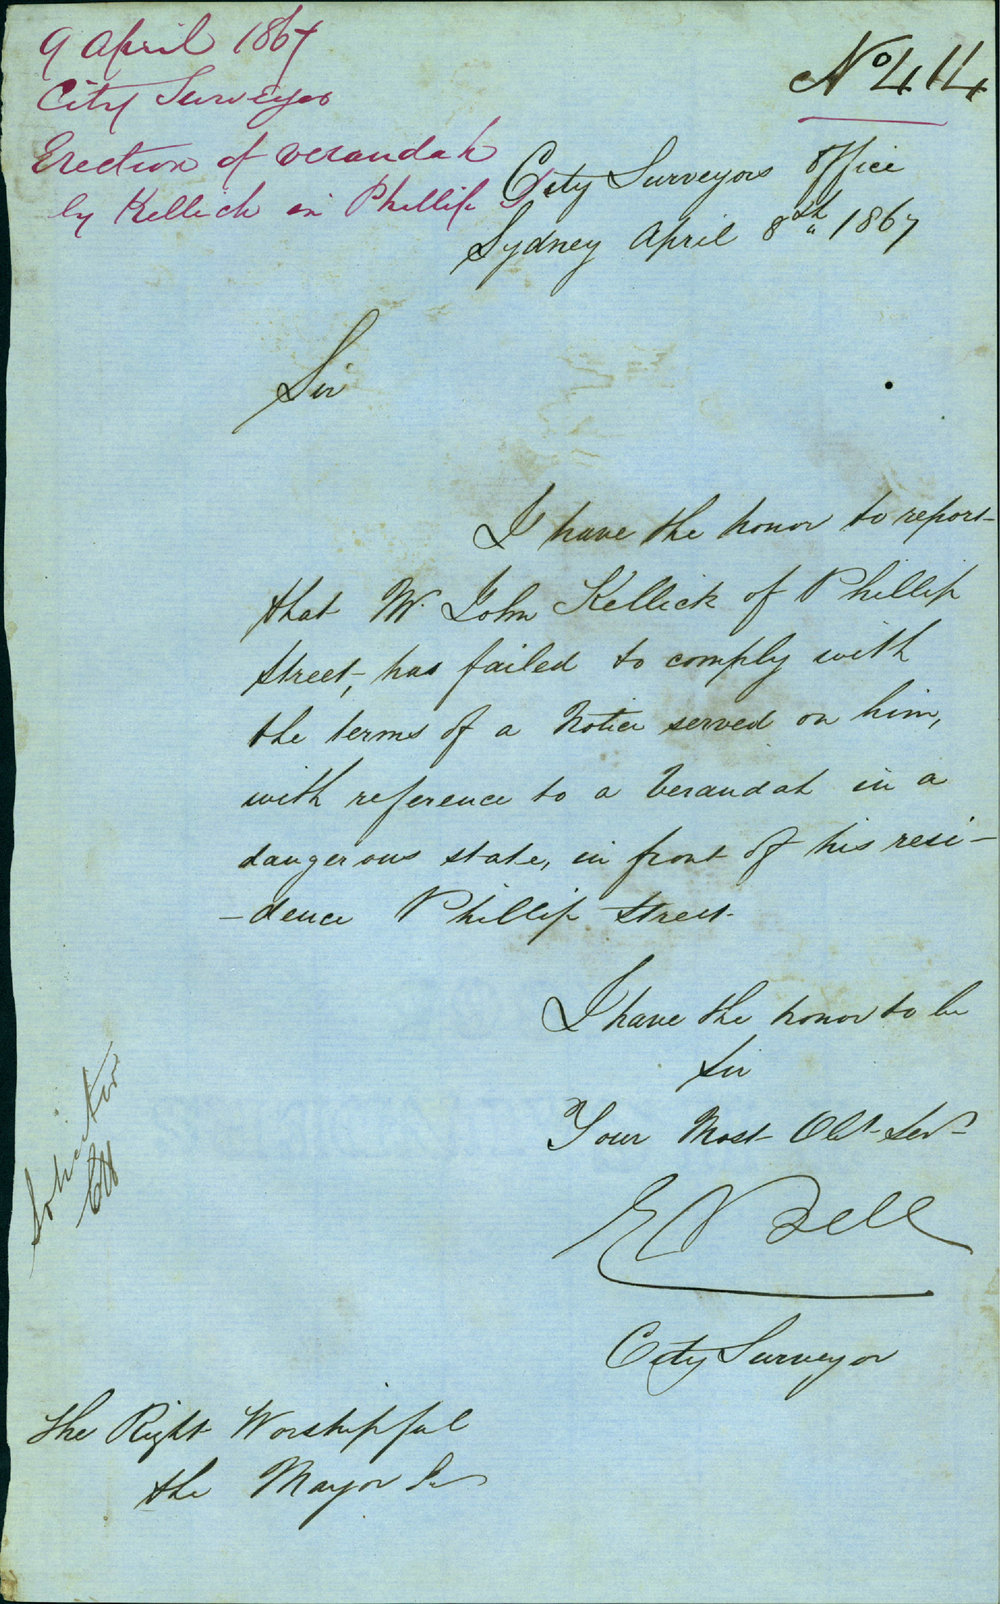 9 April 1867
City Surveyor
Erection of verandah
by Kellick in Phillip St
No 414
City Surveyors Office
Sydney April 8th 1867
Sir
I have the honor to report
that Mr. John Kellick of Phillip
Street, has failed to comply with
the terms of a Notice served on him,
with reference to a Verandah in a
dangerous state, in front of his resi-
-dence Phillip Street.
I have the honor to be
Sir
Your Most Obt Servt
E Bell
City Surveyor
Solicitor
The Right Worshipful
the Mayor &c